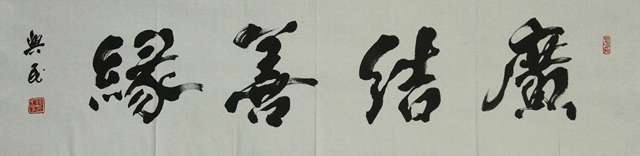 廣結善緣
興民